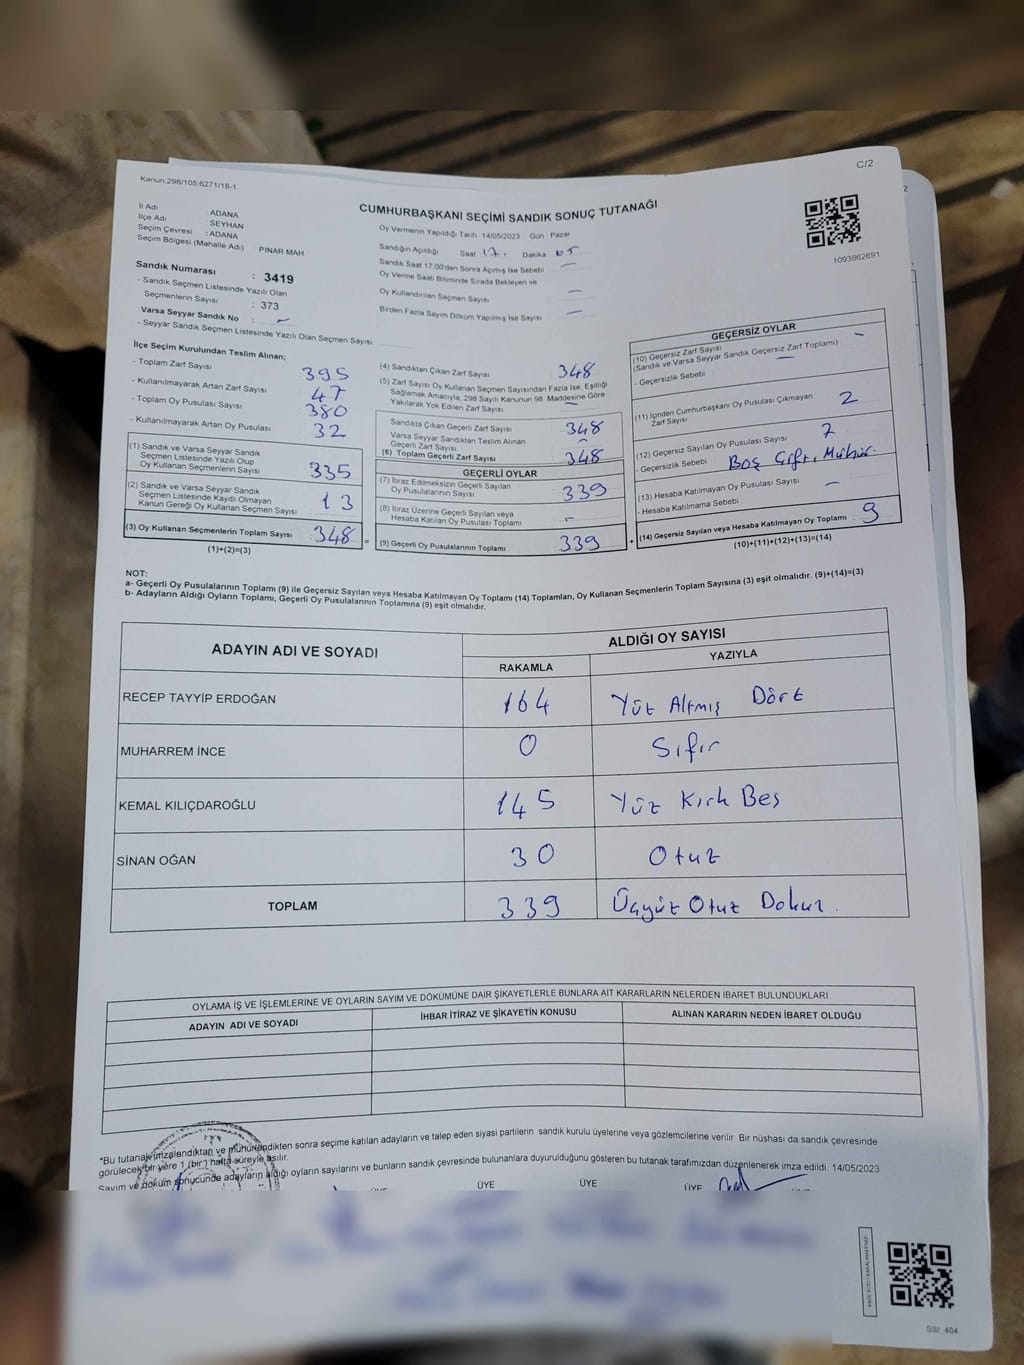 C/2
Kanun:298/105,6271/18-1
CUMHURBAŞKANI SEÇİMİ SANDIK SONUÇ TUTANAĞI
İl Adı : ADANA
İlçe Adı : SEYHAN
Seçim Çevresi : ADANA
Seçim Bölgesi (Mahalle Adı) : PINAR MAH
Sandık Numarası : 3419
- Sandık Seçmen Listesinde Yazılı Olan
Seçmenlerin Sayısı : 373
Varsa Seyyar Sandık No : -
- Seyyar Sandık Seçmen Listesinde Yazılı Olan Seçmen Sayısı:
Oy Vermenin Yapıldığı Tarih :14/05/2023 Gün : Pazar
Sandığın Açıldığı Saat 17. Dakika 05
Sandık Saat 17.00'den Sonra Açımış İse Sebebi -
Oy Verme Saati Bitiminde Sırada Bekleyen ve
Oy Kullandırılan Seçmen Sayısı -
Birden Fazla Sayım Döküm Yapılmış İse Sayısı -
1093862691
İlçe Seçim Kurulundan Teslim Alınan;
- Toplam Zarf Sayısı 395
- Kullanılmayarak Artan Zarf Sayısı 47
- Toplam Oy Pusulası Sayısı 380
- Kullanılmayarak Artan Oy Pusulası 32
(1) Sandık ve Varsa Seyyar Sandık
Seçmen Listesinde Yazılı Olup
Oy Kullanan Seçmenlerin Sayısı 335
(2) Sandık ve Varsa Seyyar Sandık
Seçmen Listesinde Kayıtlı Olmayan
Kanun Gereği Oy Kullanan Seçmen Sayısı 13
(3) Oy Kullanan Seçmenlerin Toplam Sayısı 348 =
(1)+(2)=(3)
(4) Sandıktan Çıkan Zarf Sayısı 348
(5) Zarf Sayısı Oy Kullanan Seçmen Sayısından Fazla İse, Eşitliği
Sağlamak Amacıyla, 298 Sayılı Kanunun 98. Maddesine Göre
Yakılarak Yok Edilen Zarf Sayısı -
Sandıkta Çıkan Geçerli Zarf Sayısı 348
Varsa Seyyar Sandıktan Teslim Alınan
Geçerli Zarf Sayısı -
(6) Toplam Geçerli Zarf Sayısı 348
GEÇERLİ OYLAR
(7) İtiraz Edilmeksizin Geçerli Sayılan
Oy Pusulalarının Sayısı 339
(8) İtiraz Üzerine Geçerli Sayılan veya
Hesaba Katılan Oy Pusulası Toplamı -
(9) Geçerli Oy Pusulalarının Toplamı 339 +
GEÇERSİZ OYLAR
(10) Geçersiz Zarf Sayısı -
(Sandık ve Varsa Seyyar Sandık Geçersiz Zarf Toplamı)
- Geçersizlik Sebebi -
(11) İçinden Cumhurbaşkanı Oy Pusulası Çıkmayan
Zarf Sayısı 2
(12) Geçersiz Sayılan Oy Pusulası Sayısı 7
- Geçersizlik Sebebi Boş Çift, Mühür.
(13) Hesaba Katılmayan Oy Pusulası Sayısı -
- Hesaba Katılmama Sebebi
(14) Geçersiz Sayılan veya Hesaba Katılmayan Oy Toplamı : 9
(10)+(11)+(12)+(13)=(14)
NOT:
a- Geçerli Oy Pusulalarının Toplamı (9) ile Geçersiz Sayılan veya Hesaba Katılmayan Oy Toplamı (14) Toplamları, Oy Kullanan Seçmenlerin Toplam Sayısına (3) eşit olmalıdır. (9)+(14)=(3)
b- Adayların Aldığı Oyların Toplamı, Geçerli Oy Pusulalarının Toplamına (9) eşit olmalıdır.
ADAYIN ADI VE SOYADI
ALDIĞI OY SAYISI
RAKAMLA YAZIYLA
RECEP TAYYİP ERDOĞAN 164 Yüz Altmış Dört
MUHARREM İNCE 0 Sıfır
KEMAL KILIÇDAROĞLU 145 Yüz Kırk Beş
SİNAN OĞAN 30 Otuz
TOPLAM 339 Üçyüz Otuz Dokuz.
OYLAMA İŞ VE İŞLEMLERİNE VE OYLARIN SAYIM VE DÖKÜMÜNE DAİR ŞİKAYETLERLE BUNLARA AİT KARARLARIN NELERDEN İBARET BULUNDUKLARI
ADAYIN ADI VE SOYADI İHBAR İTİRAZ VE ŞİKAYETİN KONUSU ALINAN KARARIN NEDEN İBARET OLDUĞU
*Bu tutanak imzalandıktan ve mühürlendikten sonra seçime katılan adayların ve talep eden siyasi partilerin sandık kurulu üyelerine veya gözlemcilerine verilir. Bir nüshası da sandık çevresinde
görülecek bir yere 1 (bir) hafta süreyle asılır.
Sayım ve döküm sonucunda adayların aldığı oyların sayılarını ve bunların sandık çevresinde bulunanlara duyurulduğunu gösteren bu tutanak tarafımızdan düzenlenerek imza edildi. 14/05/2023
ÜYE ÜYE ÜYE ÜYE
SSI_404